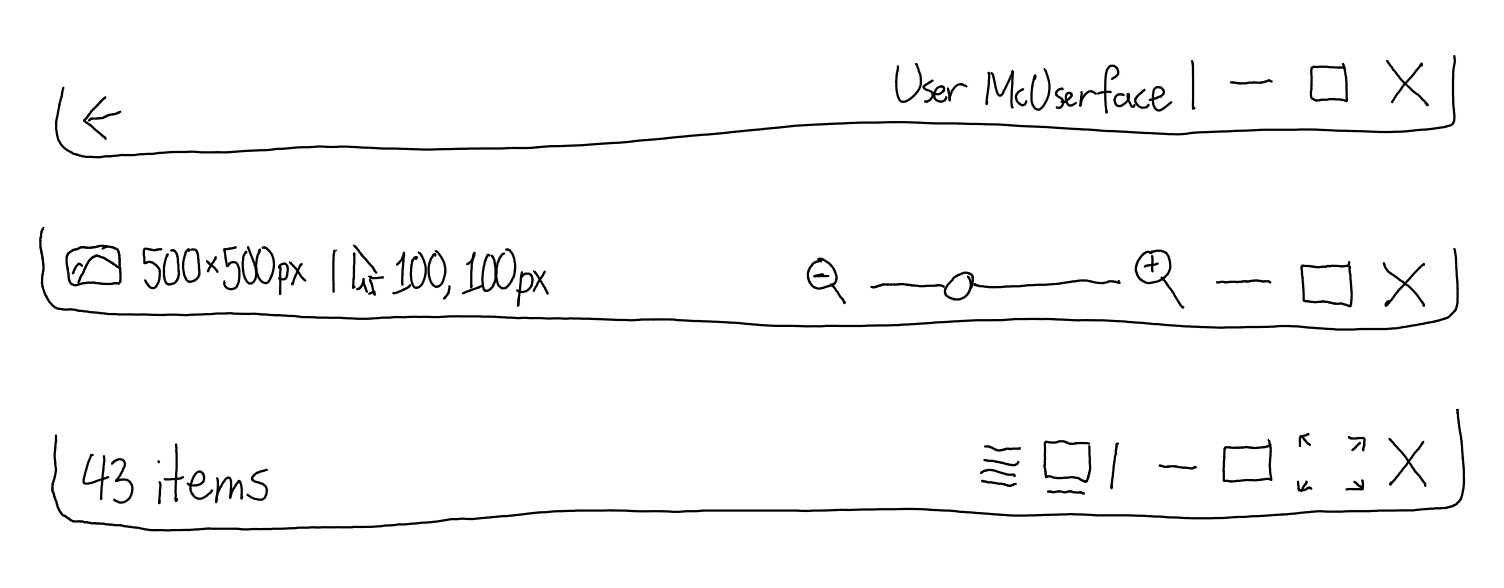 User McUserface |
500×500px | 100, 100px
43 items |